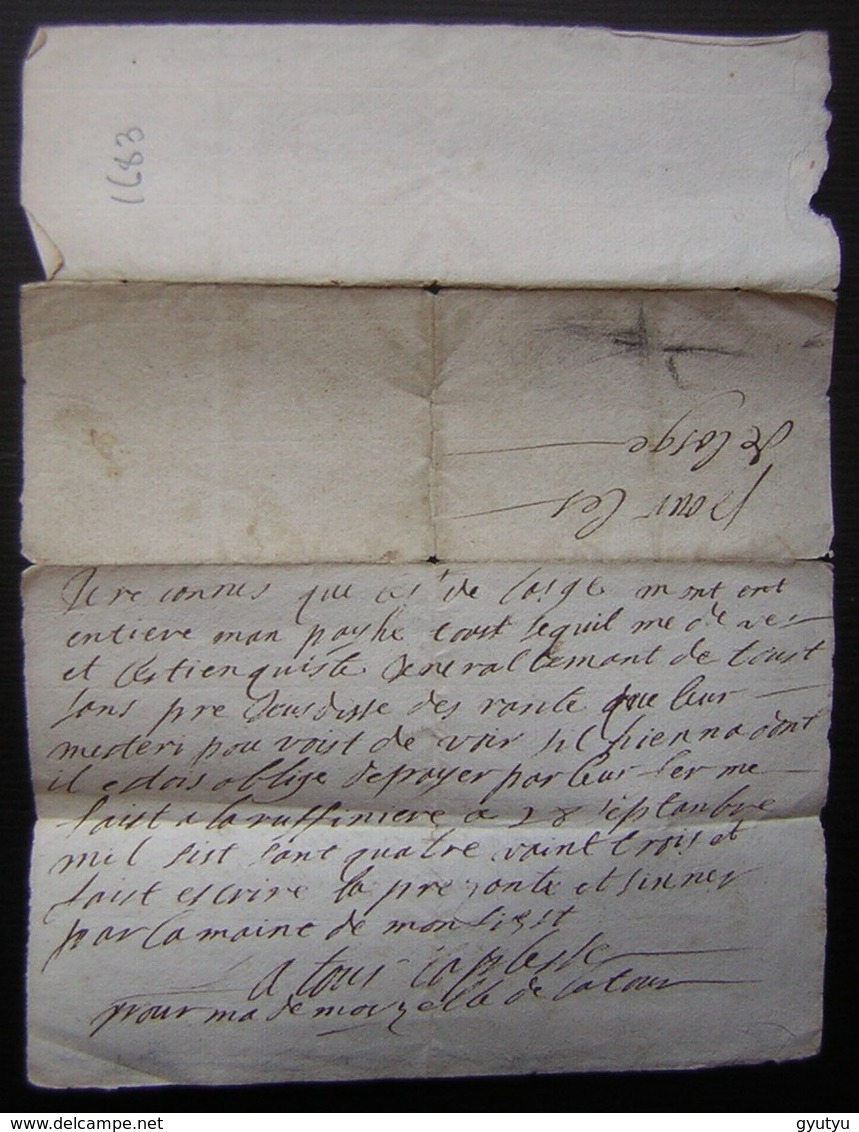 1683
pour les
de lorge
Je reconnes que les de lorge mont ent
entiere man payhe toust sequil me de ves
et les tien quiste Jenerallemant de toust
sans pre Jeusdisse des rante que leur
mesteri pou voist de voir sil hien na dont
il e dois oblige depayer par leur fer me
faist a la ruffiniere a 28 septanbre
mil sist sant quatre vaint trois et
faist escrire la pre zante et sinner
par la maine de mon
a tous
pour ma de moyzelle de la tour
www.delcampe.net
gyutyu